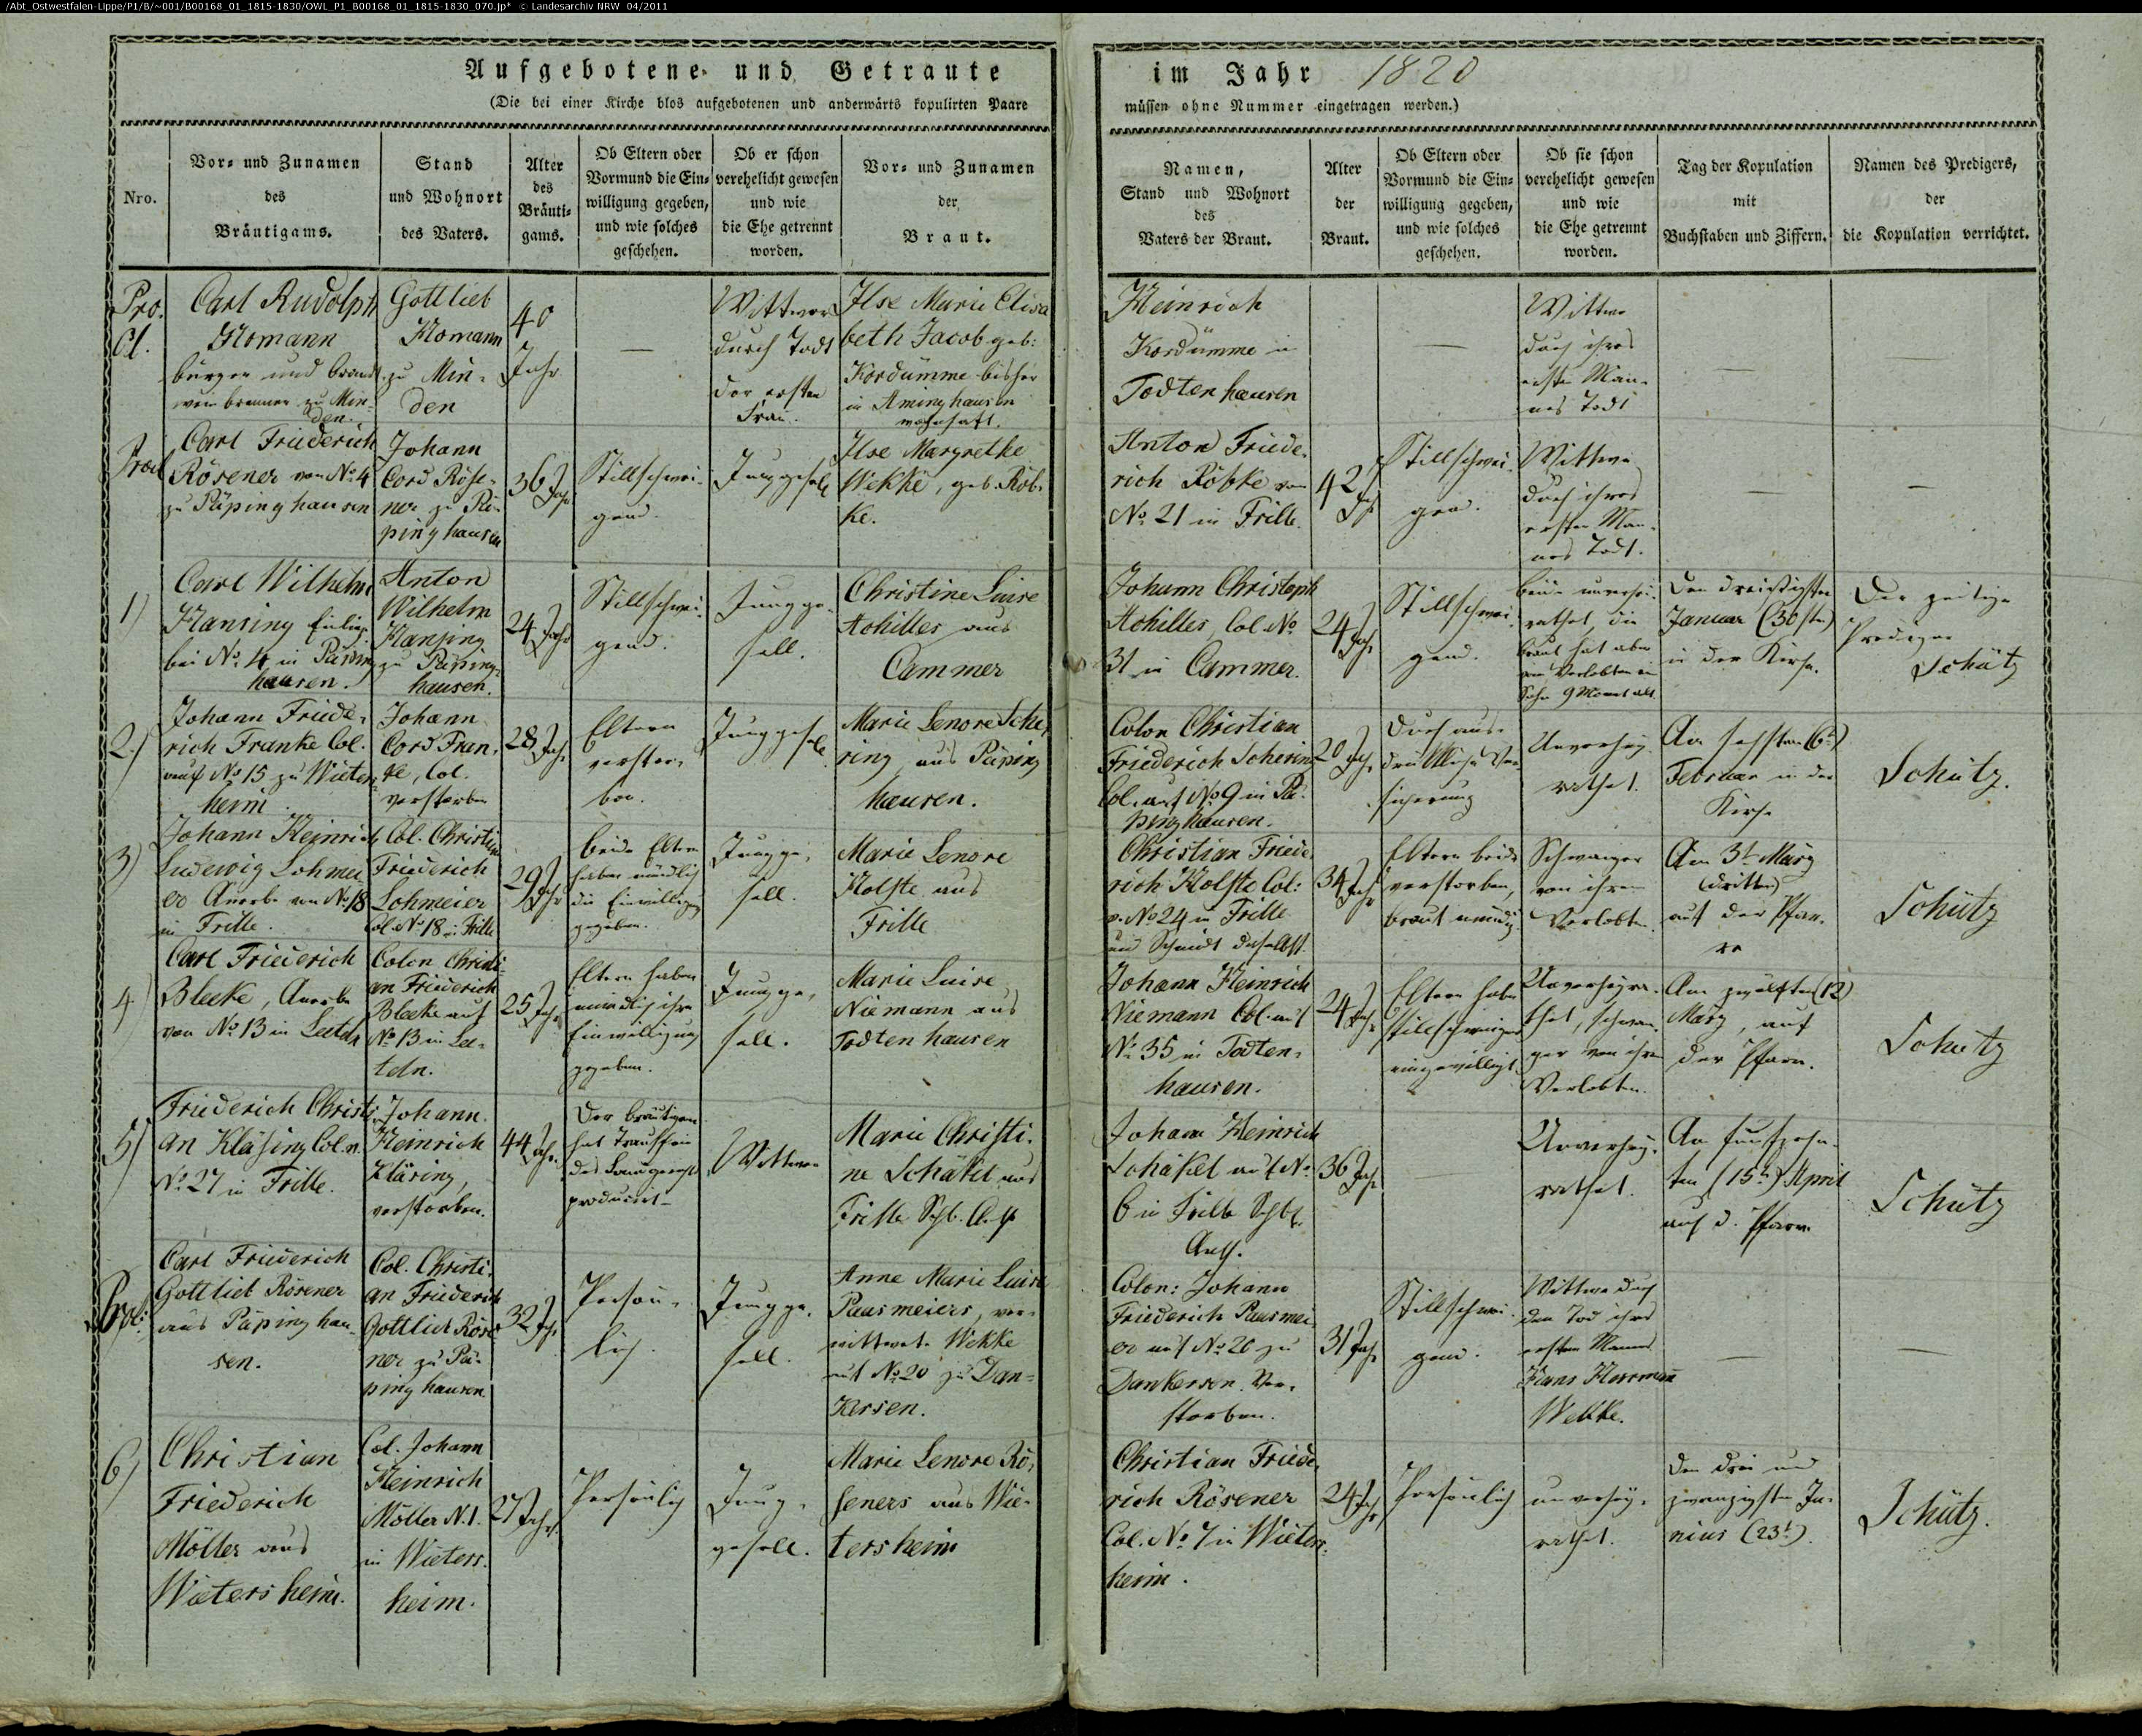 /Abt_Ostwestfalen-Lippe/P1/B/~001/B00168_01_1815-1830/OWL_P1_B00168_01_1815-1830_070.jp* © Landesarchiv NRW 04/2011
Aufgebotene und Getraute
(Die bei einer Kirche blos aufgebotenen und anderwärts kopulirten Paare
im Jahr 1820
müssen ohne Nummer eingetragen werden.)
Nro.
Vor- und Zunamen
des
Bräutigams.
Stand
und Wohnort
des Vaters.
Alter
des
Bräuti-
gams.
Ob Eltern oder
Vormund die Ein-
willigung gegeben,
und wie solches
geschehen.
Ob er schon
verehelicht gewesen
und wie
die Ehe getrennt
worden.
Vor- und Zunamen
der
Braut.
Namen,
Stand und Wohnort
des
Vaters der Braut.
Alter
der
Braut.
Ob Eltern oder
Vormund die Ein-
willigung gegeben,
und wie solches
geschehen.
Ob sie schon
verehelicht gewesen
und wie
die Ehe getrennt
worden.
Tag der Kopulation
mit
Buchstaben und Ziffern.
Namen des Predigers,
der
die Kopulation verrichtet.
Pro.
Cl.
Carl Rudolph
Homann
bürger und brandt
wein brenner zu Min-
den.
Gottlieb
Homann
zu Min-
den
40
Jahr
—
Wittwer
durch Todt
der ersten
Frau.
Ilse Marie Elisa
beth Jacob geb:
Kordümme bisher
in Aminghausen
wohnhaft.
Heinrich
Kordümme in
Todtenhausen
—
Wittwe
durch ihres
ersten Man-
nes Todt
—
—
Procl
Carl Friederich
Rösener von No. 4
zu Päpinghausen
Johann
Cord Röse-
ner zu Pä-
pinghausen
36 Jahr
Stillschwei-
gend.
Junggesell
Ilse Margrethe
Wekke, geb. Röb-
ke.
Anton Friede-
rich Röbke von
No. 21 in Frille.
42 Jahr
Stillschwei-
gend.
Wittwe
durch ihres
ersten Man-
nes Todt.
—
—
1)
Carl Wilhelm
Hansing Einlieg.
bei No. 4 in Päping
hausen.
Anton
Wilhelm
Hansing
zu Päping-
hausen.
24 Jahr
Stillschwei-
gend.
Jungge-
sell.
Christine Luise
Achilles aus
Cammer
Johann Christoph
Achilles, Col. No.
31 in Cammer.
24 Jahr
Stillschwei-
gend.
beide unverhei-
rathet, die
Braut hat aber
vom Verlobten ein
Sohn 9 Monat alt.
Den dreißigsten
Januar (30sten)
in der Kirche.
Der zeitige
Prediger
Schütz
2.)
Johann Friede-
rich Franke Col.
auf No 15 zu Wieters-
heim
Johann
Cord Fran-
ke, Col.
verstorben
28 Jahr
Eltern
verstor-
ben.
Junggesell
Marie Lenore Sche-
ring, aus Päping
hausen.
Colon Christian
Friederich Schering
Col. auf No 9 in Pä-
pinghausen.
20 Jahr
Durch aus-
drückliche Ver
sicherung
Unverhey-
rathet.
Am sechsten (6t)
Februar in der
Kirche
Schütz.
3)
Johann Heinrich
Ludewig Lohmei
er Anerbe von No 18
in Frille.
Col. Christian
Friederich
Lohmeier
Col. No 18 in Frille
29 Jahr
beide Eltern
haben mündlich
die Einwilligung
gegeben.
Jungge-
sell.
Marie Lenore
Holste aus
Frille
Christian Friede
rich Holste Col:
v. No 24 in Frille
und Schmidt daselbst.
34 Jahr
Eltern beide
verstorben,
Braut mündig.
Schwanger
von ihrem
Verlobten.
Am 3t. März
(dritten)
auf der Pfar-
re
Schütz
4)
Carl Friederich
Bleeke, Anerbe
von No 13 in Leteln
Colon Christi-
an Friederich
Bleeke auf
No 13 in Le-
teln.
25 Jahr
Eltern haben
mündlich ihre
Einwilligung
gegeben.
Jungge-
sell.
Marie Luise
Niemann aus
Todtenhausen
Johann Heinrich
Niemann Col. auf
No 35 in Todten-
hausen.
24 Jahr
Eltern haben
stillschweigend
eingewilligt.
Unverheyra-
thet, schwan-
ger von ihrem
Verlobten.
Am zwölften (12)
März, auf
der Pfarre.
Schütz
5)
Friederich Christi-
an Kläsing Col. n.
No. 27 in Frille.
Johann
Heinrich
Kläsing,
verstorben.
44 Jahr.
Der Bräutigam
hat Trauschein
des
producirt
Wittwer
Marie Christi-
ne Schäkel aus
Frille
Johann Heinrich
Schäkel auf No.
6 in Frille
36 Jahr
—
Unverhey-
rathet.
Am funfzehn-
ten (15t.) April
auf d. Pfarre
Schütz
Procl.
Carl Friederich
Gottlieb Rösener
aus Päpinghau-
sen.
Col. Christi-
an Friederich
Gottlieb Röse-
ner zu Pä-
pinghausen.
32 Jahr
Persön-
lich.
Jungge-
sell.
Anne Marie Luise
Pausmeiers, ver-
wittwete Wekke
auf No. 20 zu Dan-
kersen.
Colon: Johann
Friederich Pausmei-
er auf No. 20 zu
Dankersen. Ver-
storben.
31 Jahr
Stillschwei-
gend.
Wittwe durch
den Tod ihres
ersten Mannes
Hans Herrmann
Wekke.
—
—
6)
Christian
Friederich
Möller aus
Wietersheim.
Col. Johann
Heinrich
Möller N. 1.
in Wieters-
heim.
27 Jahr
Persönlich
Jung-
gesell.
Marie Lenore Rö-
seners aus Wie-
tersheim
Christian Friede-
rich Rösener
Col. No. 7 in Wieters-
heim.
24 Jahr
Persönlich
unverhey-
rathet.
Den drei und
zwanzigsten Ju-
nius (23t.)
Schütz.